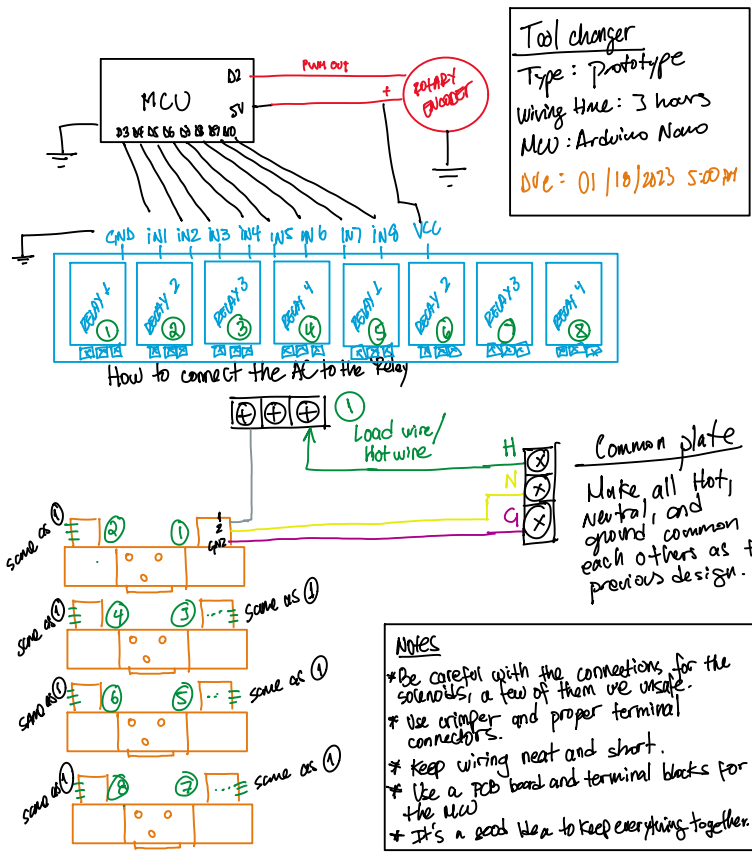 Tool changer
Type: prototype
Wiring time: 3 hours
MCU: Arduino Nano
Due: 01/18/2023 5:00 PM
MCU
D2
5V
PWM OUT
+
ROTARY
ENCODER
D3 D4 D5 D6 D7 D8 D9 D10
GND IN1 IN2 IN3 IN4 IN5 IN6 IN7 IN8 VCC
RELAY 1
RELAY 2
RELAY 3
RELAY 4
RELAY 1
RELAY 2
RELAY 3
RELAY 4
1
2
3
4
5
6
7
8
How to connect the AC to the Relay
1
Load wire/
Hot wire
H
N
G
Common plate
Make all Hot,
Neutral, and
ground common
each others as
previous design.
same as 1
2
1
1
2
GND
same as 1
4
3
same as 1
same as 1
6
5
same as 1
same as 1
8
7
same as 1
Notes
*Be careful with the connections for the
solenoids, a few of them are unsafe.
* Use crimper and proper terminal
connectors.
* Keep wiring neat and short.
* Use a PCB board and terminal blocks for
the MCU
* It's a good idea to keep everything together.